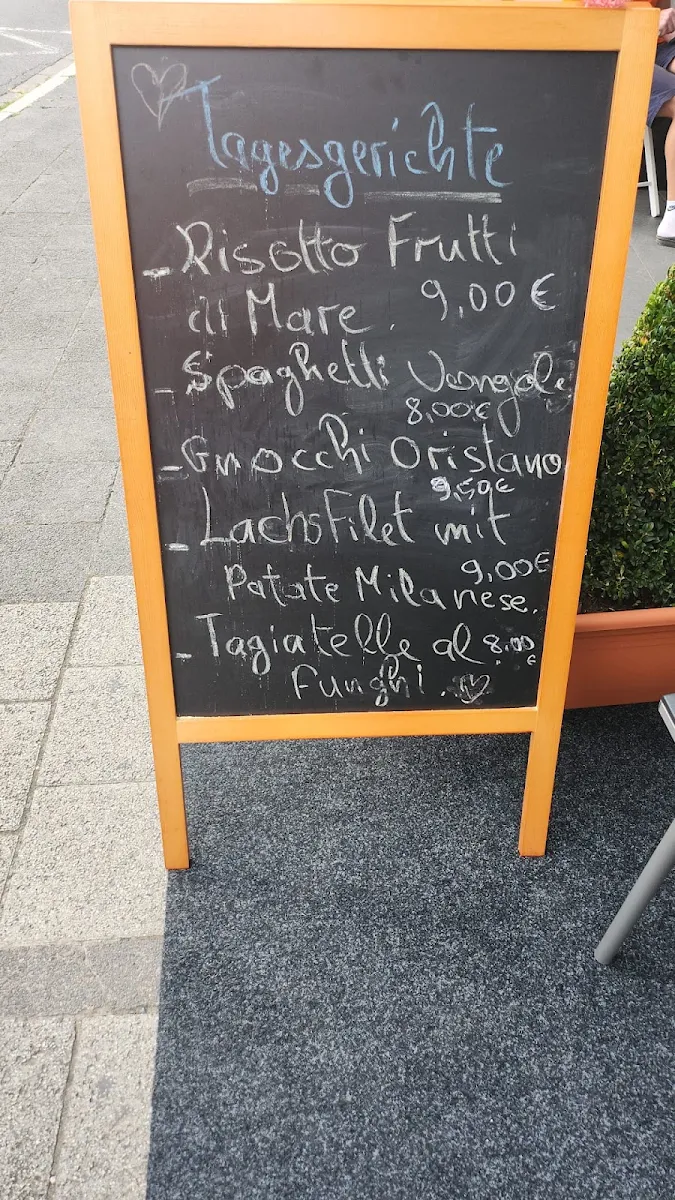 Tagesgerichte
- Risotto Frutti
di Mare. 9,00€
- Spaghetti Vongole
8,00€
- Gnocchi Oristano
9,50€
- Lachsfilet mit
9,00€
Patate Milanese.
- Tagiatelle al 8.00
€
Funghi.